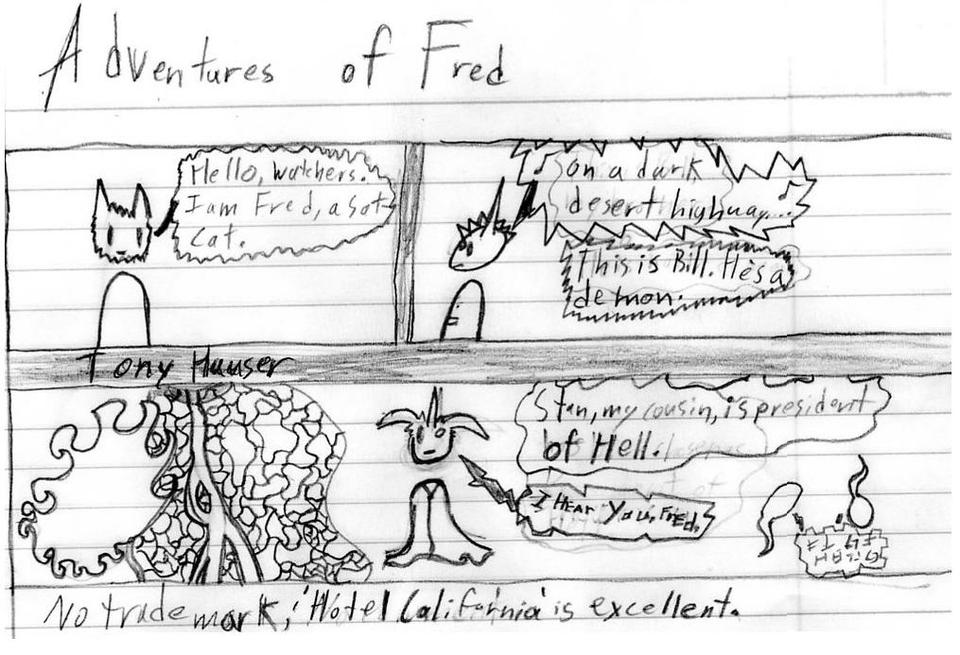 Adventures of Fred
Hello, watchers.
I am Fred, a Sot
Cat.
♪ on a dark
desert highway... ♪
This is Bill. He's a
demon.
Tony Hauser
Stan, my cousin, is president
of Hell.
I Hear You, Fred.
No trademark; 'Hotel California' is excellent.